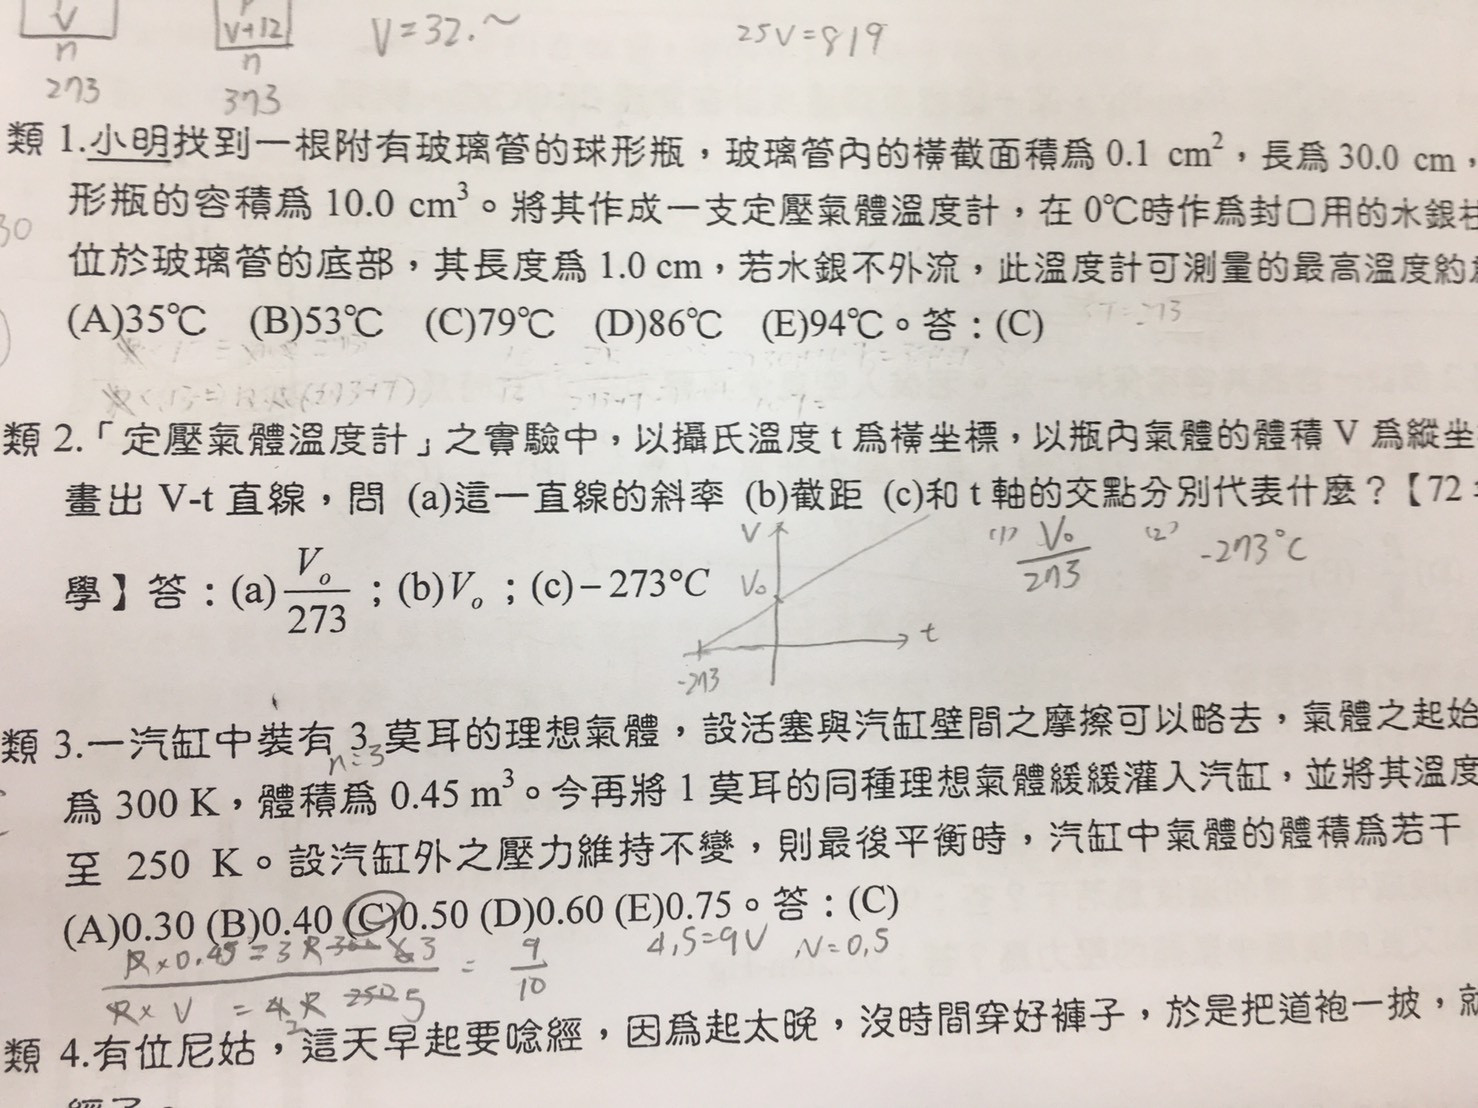 V
n
273
V+12
n
373
V=32.~
25V=819
類 1.小明找到一根附有玻璃管的球形瓶，玻璃管內的橫截面積為 0.1 cm²，長為 30.0 cm，
形瓶的容積為 10.0 cm³。將其作成一支定壓氣體溫度計，在 0℃時作為封口用的水銀柱
30
位於玻璃管的底部，其長度為 1.0 cm，若水銀不外流，此溫度計可測量的最高溫度約為
(A)35℃ (B)53℃ (C)79℃ (D)86℃ (E)94℃。答：(C)
類 2.「定壓氣體溫度計」之實驗中，以攝氏溫度 t 為橫坐標，以瓶內氣體的體積 V 為縱坐
畫出 V-t 直線，問 (a)這一直線的斜率 (b)截距 (c)和 t 軸的交點分別代表什麼？【72
學】答：(a) V₀/273 ；(b)V₀ ；(c)−273°C
V
V₀
t
-273
(1) V₀/273 (2) -273°C
類 3.一汽缸中裝有 3 莫耳的理想氣體，設活塞與汽缸壁間之摩擦可以略去，氣體之起始
n=3
為 300 K，體積為 0.45 m³。今再將 1 莫耳的同種理想氣體緩緩灌入汽缸，並將其溫度
至 250 K。設汽缸外之壓力維持不變，則最後平衡時，汽缸中氣體的體積為若干
(A)0.30 (B)0.40 (C)0.50 (D)0.60 (E)0.75。答：(C)
R×0.45=3 R 300 6 3
R× V = 4 R 250 5
2
= 9/10
4.5=9V V=0.5
類 4.有位尼姑，這天早起要唸經，因為起太晚，沒時間穿好褲子，於是把道袍一披，就